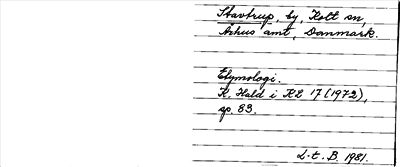 Stavtrup, by, Kolt sn,
Århus amt, Danmark.
Etymologi.
K. Hald i KL 17 (1972),
sp. 83.
L.t. B. 1981.